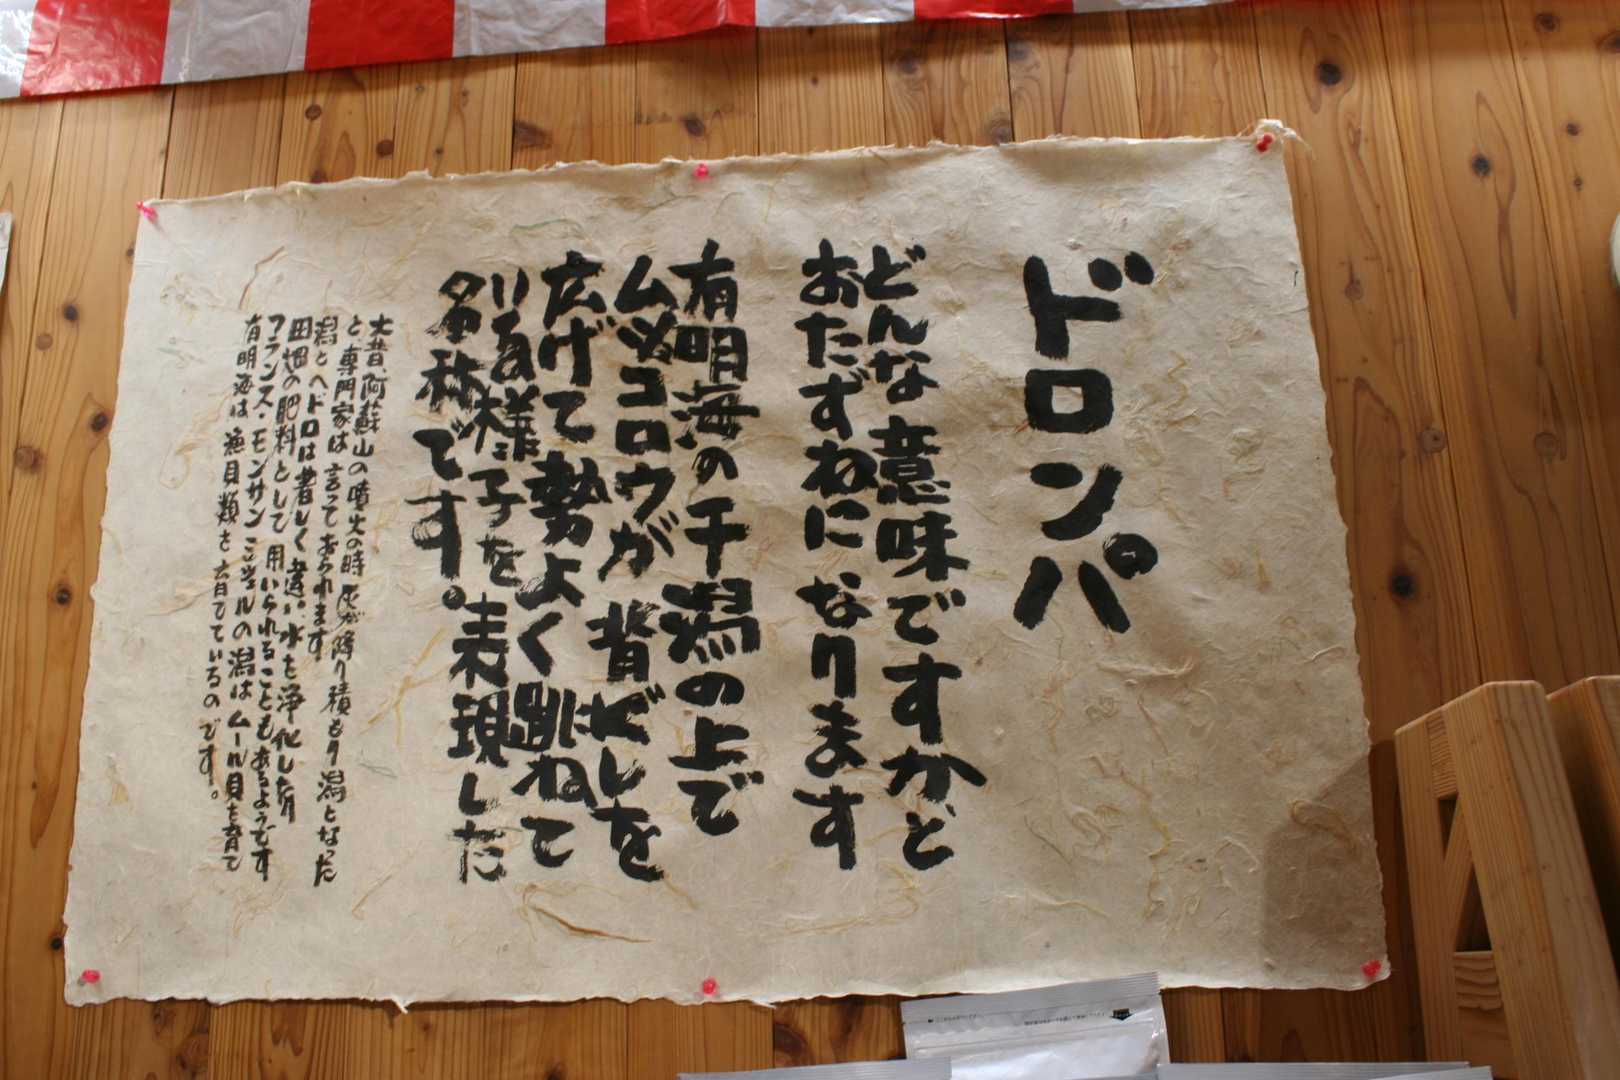 ドロンパ
どんな意味ですかと
おたずねになります
有明海の干潟の上で
ムツゴロウが背ビレを
広げて勢よく跳ねて
いる様子を表現した
名称です。
大昔、阿蘇山の噴火の時灰が降り積もり潟となった
と専門家は言っておられます
潟とヘドロは著しく違い、水を浄化したり
田畑の肥料として用いられることもあるようです
フランス・モンサンミッシェルの潟はムール貝を育て
有明海は漁貝類を育てているのです。